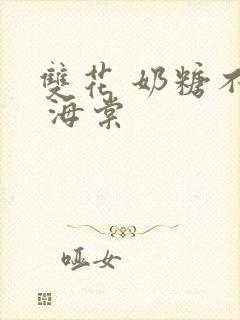 雙花 奶糖不
海棠
哑女